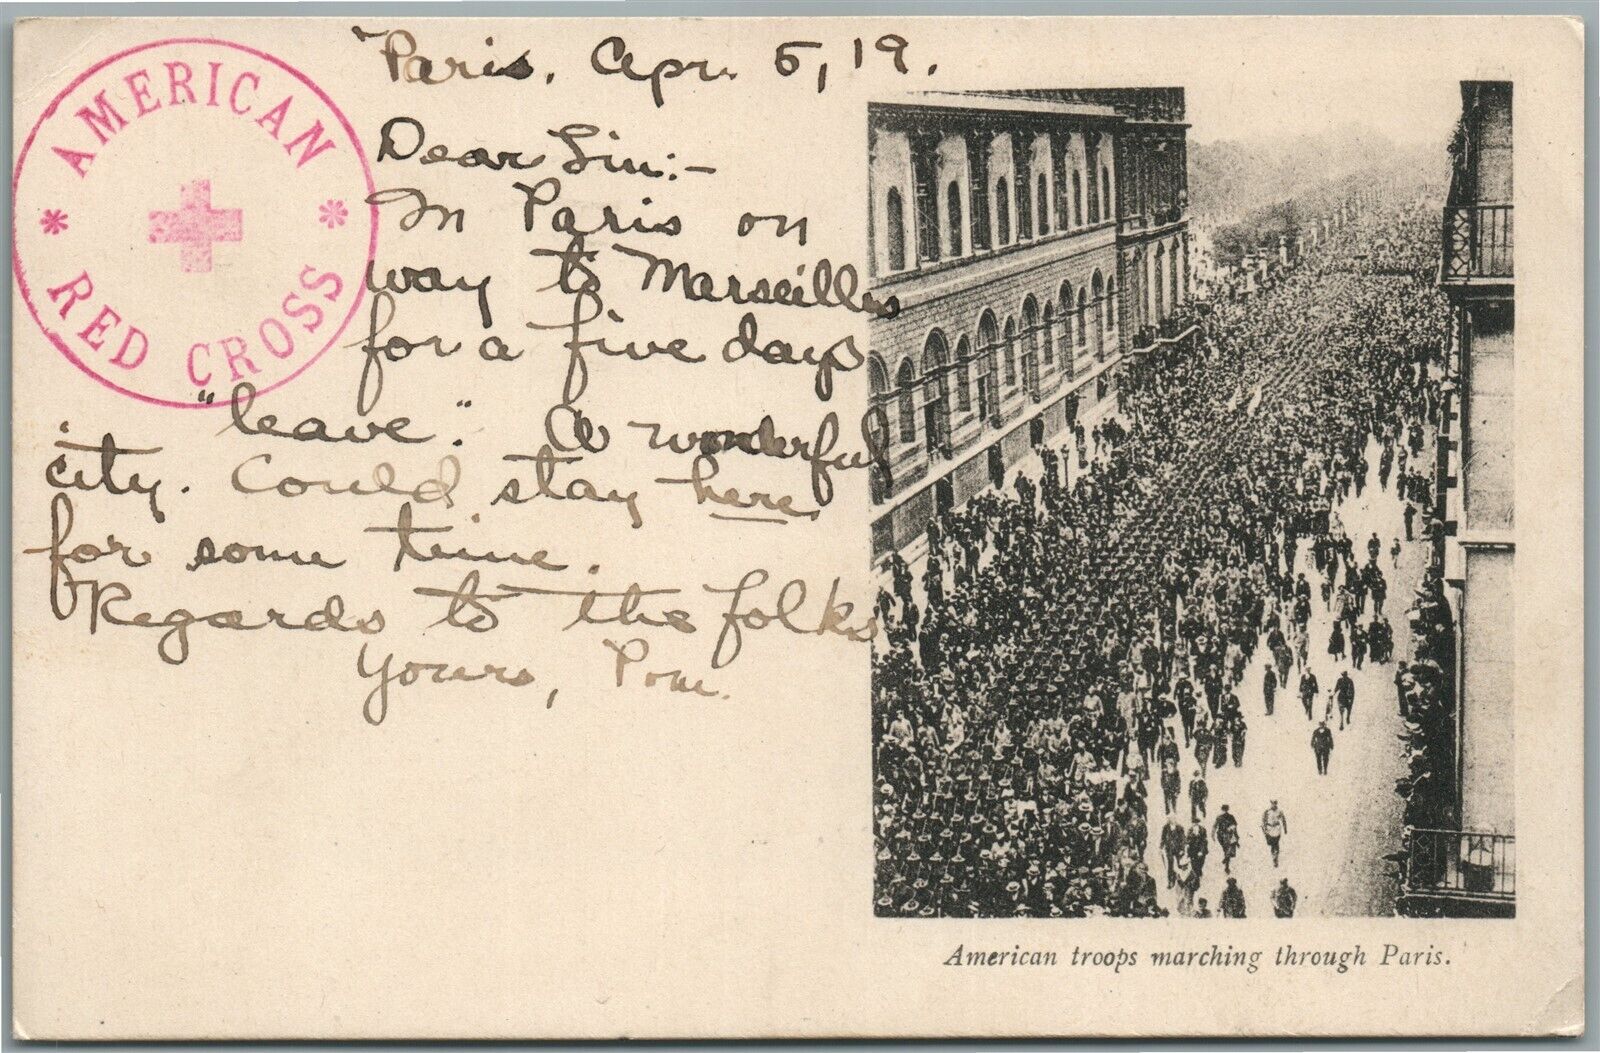 AMERICAN
* *
RED CROSS
Paris, Apr. 5, 19.
Dear Lin:-
In Paris on
way to Marseilles
for a five days
"leave." A wonderful
city. Could stay here
for some time.
Regards to the folks
Yours, Pom.
American troops marching through Paris.